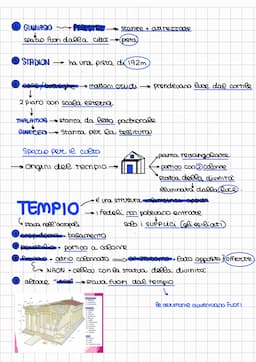 GINNASIO → stanze + attrezzate
spazio fuori dalla città → pista
STADION → ha una pista di 192m
→ mattoni crudi → prendevano luce dal cortile
2 piani con scala esterna
THALAMOS → stanza da letto patronale
GINECEO → Stanza per la tessitura
Spazio per il culto
→ origini del tempio →
pianta rettangolare
portico con 2 colonne
statua della divinità
illuminata dalla luce
TEMPIO
è una struttura
i fedeli non potevano entrare
solo i SUPPLICI (gli esiliati)
→ basamento
→ portico a colonne
→ atrio colonnato → lato opposto offerte
↳ NAOS - cella con la statua della divinità
altare → stava fuori dal tempio
le cerimonie avvenivano fuori